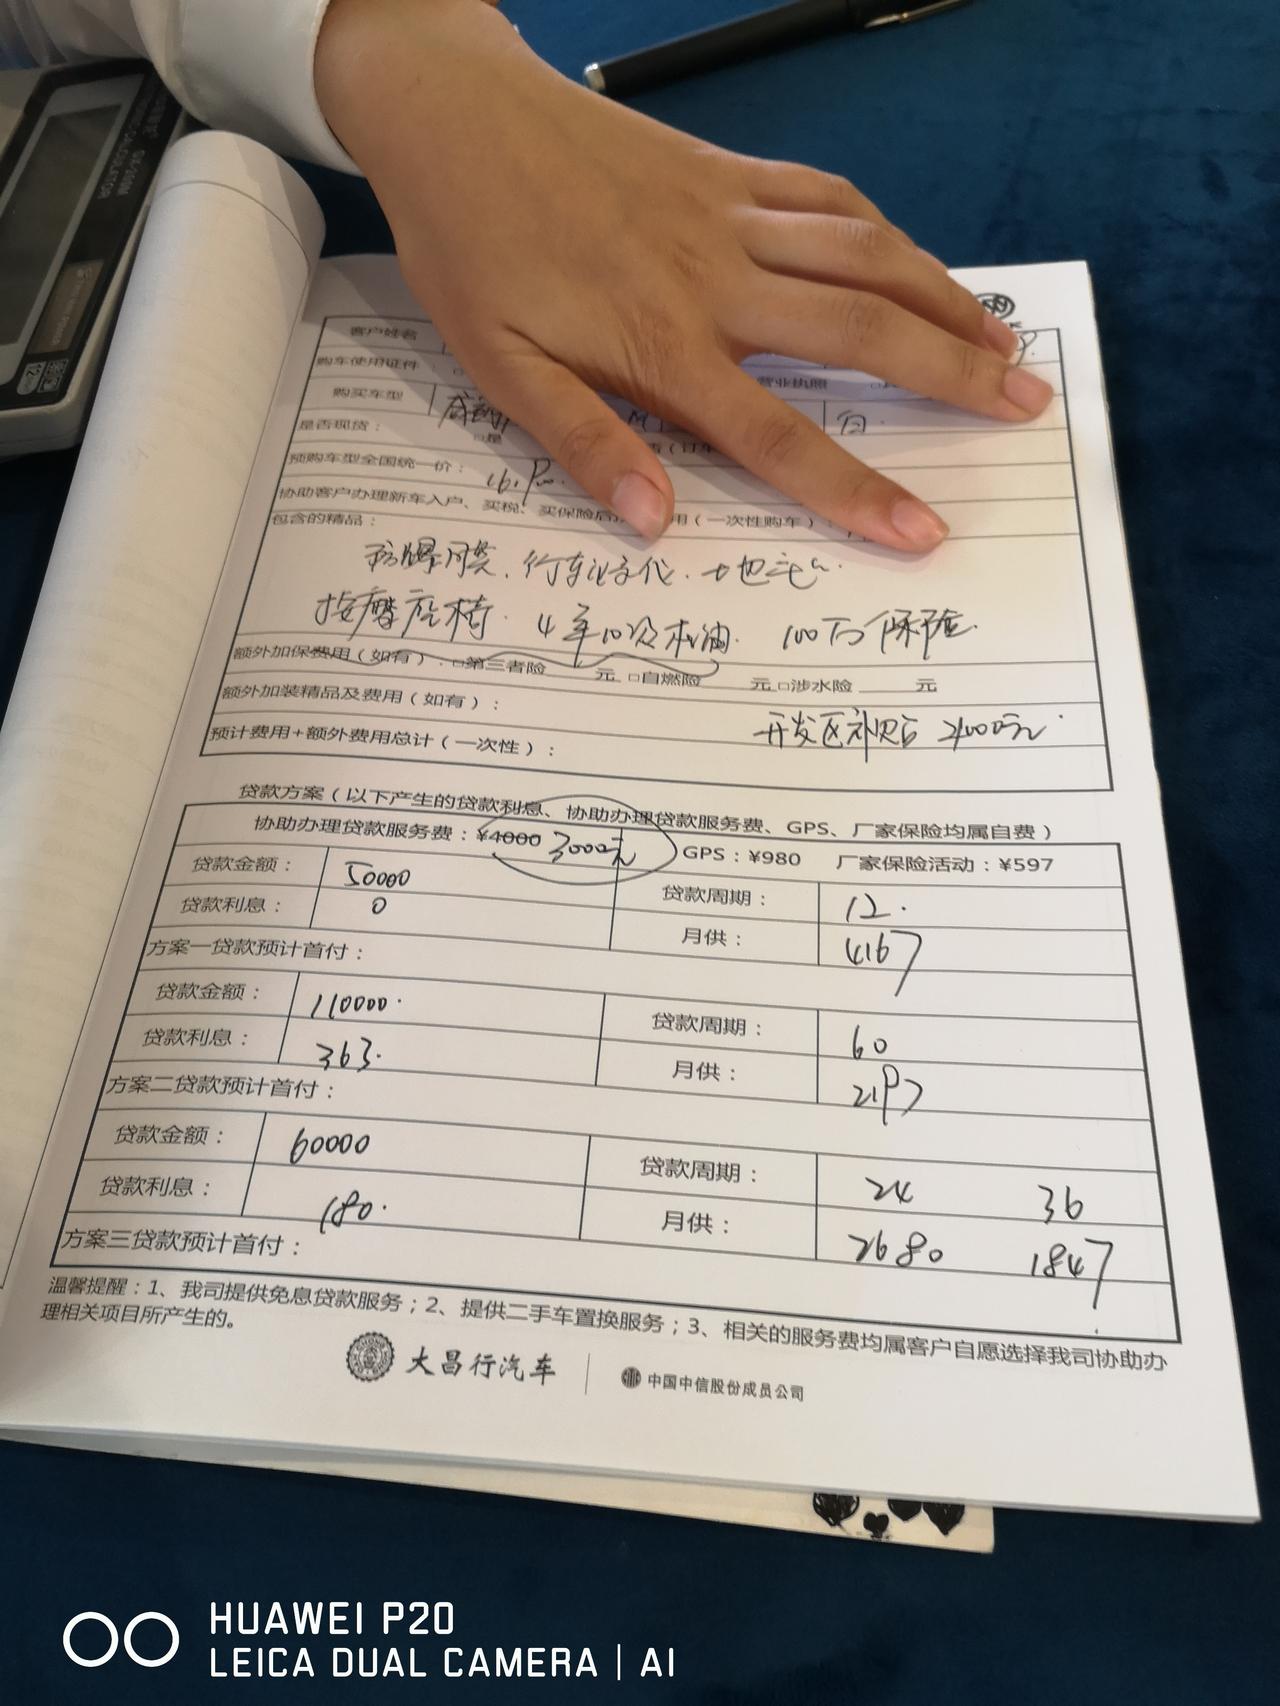 客户姓名
购车使用证件： 营业执照
购买车型 白
是否现货： □是
预购车型全国统一价：
协助客户办理新车入户、买税、买保险后 用（一次性购车）：
包含的精品：
防爆膜
按摩座椅. 4年10次机油. 100万保险.
额外加保费用（如有）. □第三者险 元 □自燃险 元 □涉水险 元
额外加装精品及费用（如有）：
开发区补贴后 2000元
预计费用+额外费用总计（一次性）：
贷款方案（以下产生的贷款利息、协助办理贷款服务费、GPS、厂家保险均属自费）
协助办理贷款服务费：¥4000 3000元 GPS：¥980 厂家保险活动：¥597
贷款金额： 50000 贷款周期： 12.
贷款利息： 0 月供： 4167
方案一贷款预计首付：
贷款金额： 110000. 贷款周期： 60
贷款利息： 363. 月供： 2197
方案二贷款预计首付：
贷款金额： 60000 贷款周期： 24 36
贷款利息： 180. 月供： 2680 1847
方案三贷款预计首付：
温馨提醒：1、我司提供免息贷款服务；2、提供二手车置换服务；3、相关的服务费均属客户自愿选择我司协助办
理相关项目所产生的。
大昌行汽车 中国中信股份成员公司
HUAWEI P20
LEICA DUAL CAMERA | AI